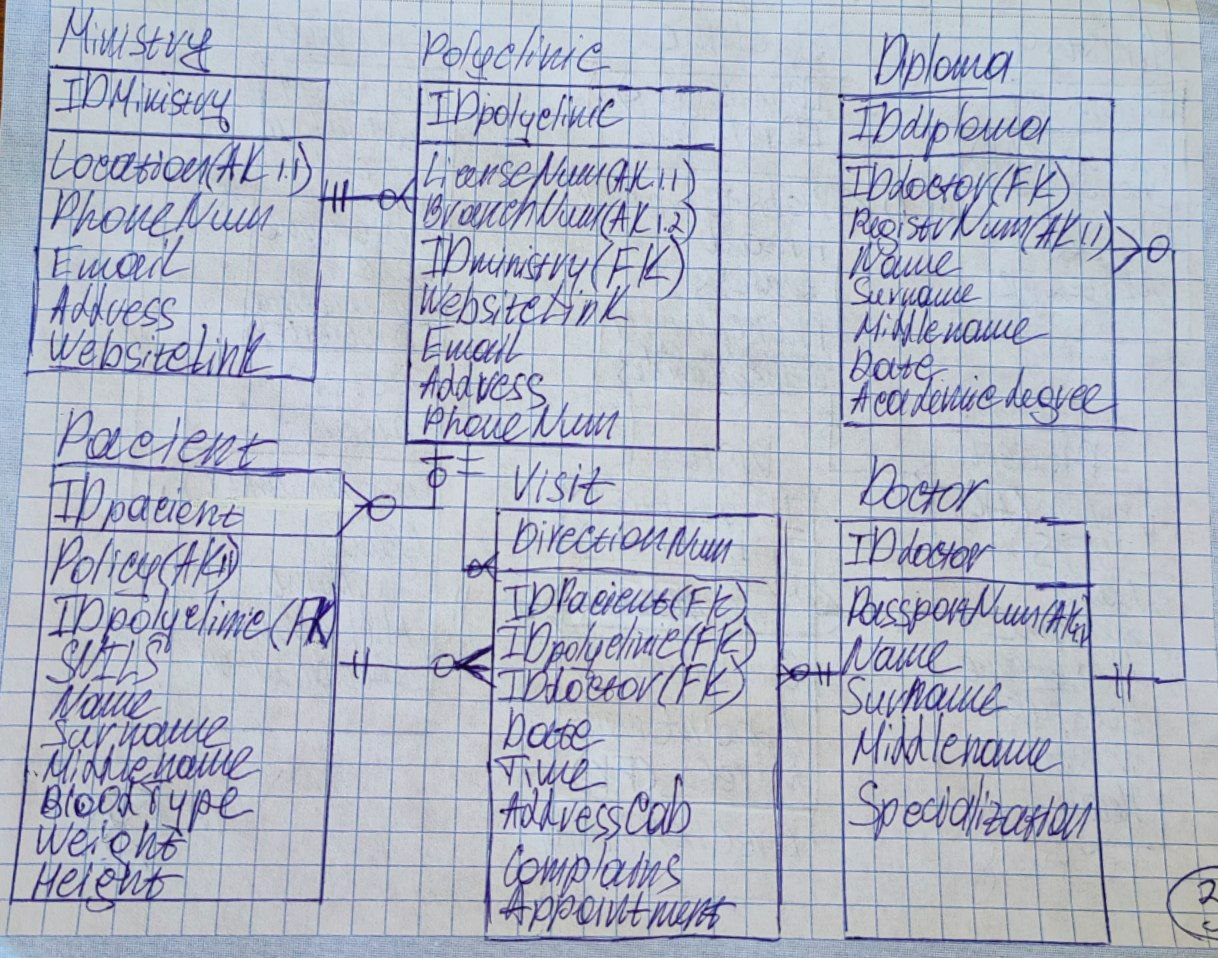 Ministry
IDMinistry
Location(AK 1.1)
PhoneNum
Email
Address
WebsiteLink
Polyclinic
IDpolyclinic
LicenseNum(AK 1.1)
BranchNum(AK 1.2)
IDministry(FK)
WebsiteLink
Email
Address
PhoneNum
Diploma
IDdiploma
IDdoctor(FK)
RegistrNum(AK 1.1)
Name
Surname
Middlename
Date
Academic degree
Pacient
IDpacient
Policy(AK1.1)
IDpolyclinic(FK
SNILS
Name
Surname
Middlename
BloodType
Weight
Height
Visit
DirectionNum
IDPacient(FK)
IDpolyclinic(FK)
IDdoctor(FK)
Date
Time
AddressCab
Complains
Appointment
Doctor
IDdoctor
PassportNum(AK1.1)
Name
Surname
Middlename
Specialization
2